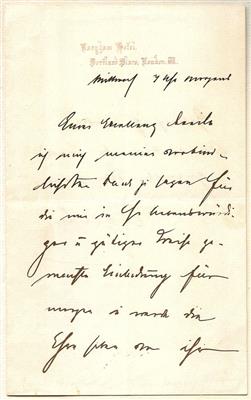 Langham Hotel,
Portland Place, London. W.
Mittwoch 7 Uhr Morgens
Euer Exzellenz beeile
ich mich meinen verbind-
lichsten Dank zu sagen für
die mir in so liebenswürdi-
ger u gütiger Weise ge-
machte Einladung für
morgen u werde die
Ehre haben um